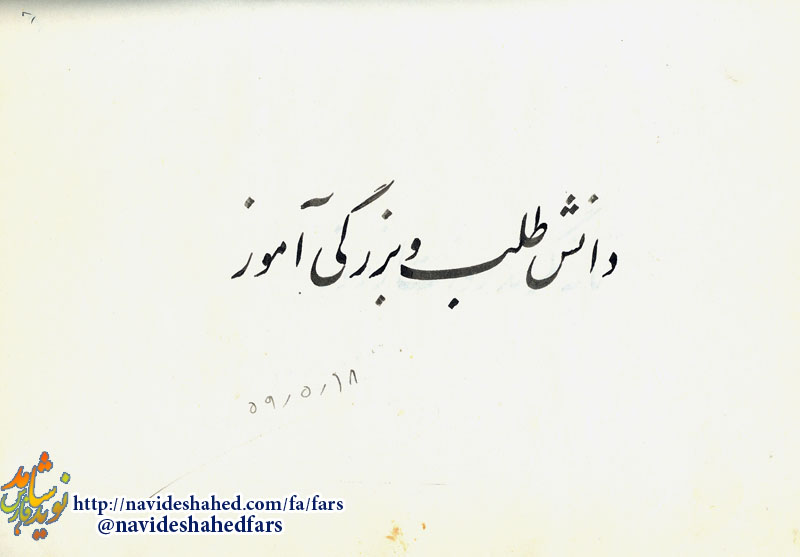 دانش طلب و بزرگی آموز
۵۹/۵/۱۸
نوید شاهد
فارس
http://navideshahed.com/fa/fars
@navideshahedfars